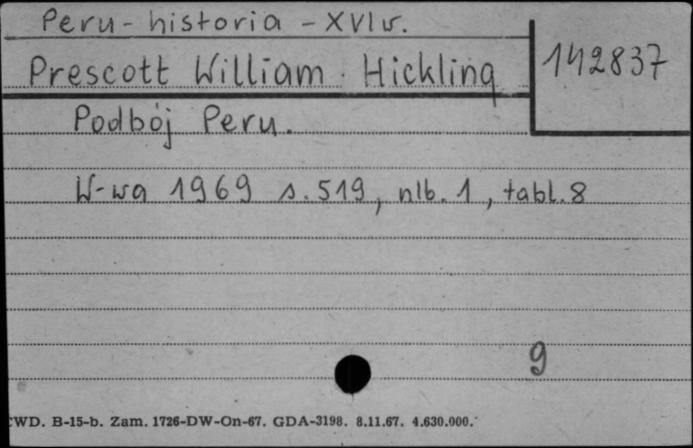 Peru - historia - XVI w.
Prescott William Hickling
142837
Podbój Peru.
W-wa 1969 s. 519, nlb. 1, tabl. 8
9
WD. B-15-b. Zam. 1726-DW-On-67. GDA-3198. 8.11.67. 4.630.000.